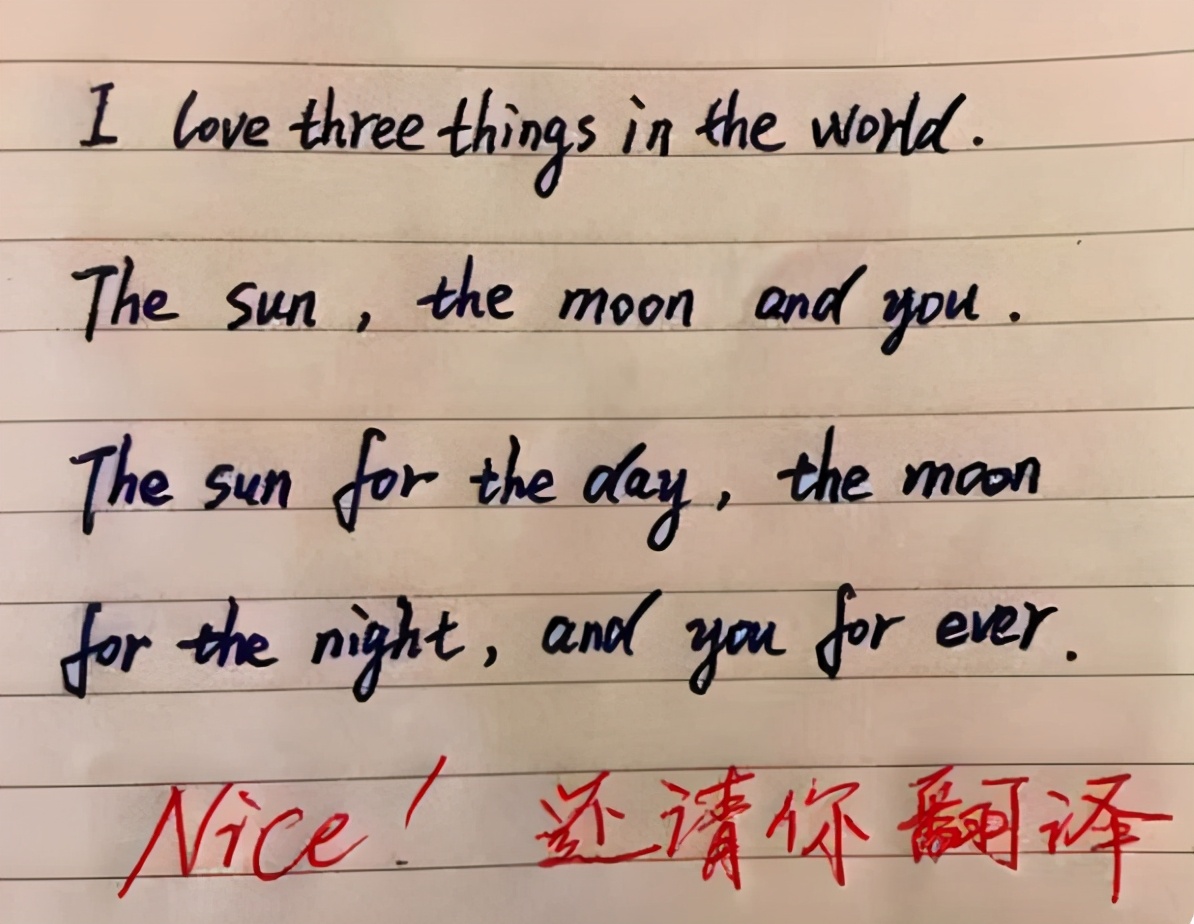 I love three things in the world.
The sun, the moon and you.
The sun for the day, the moon
for the night, and you for ever.
Nice! 还请你翻译